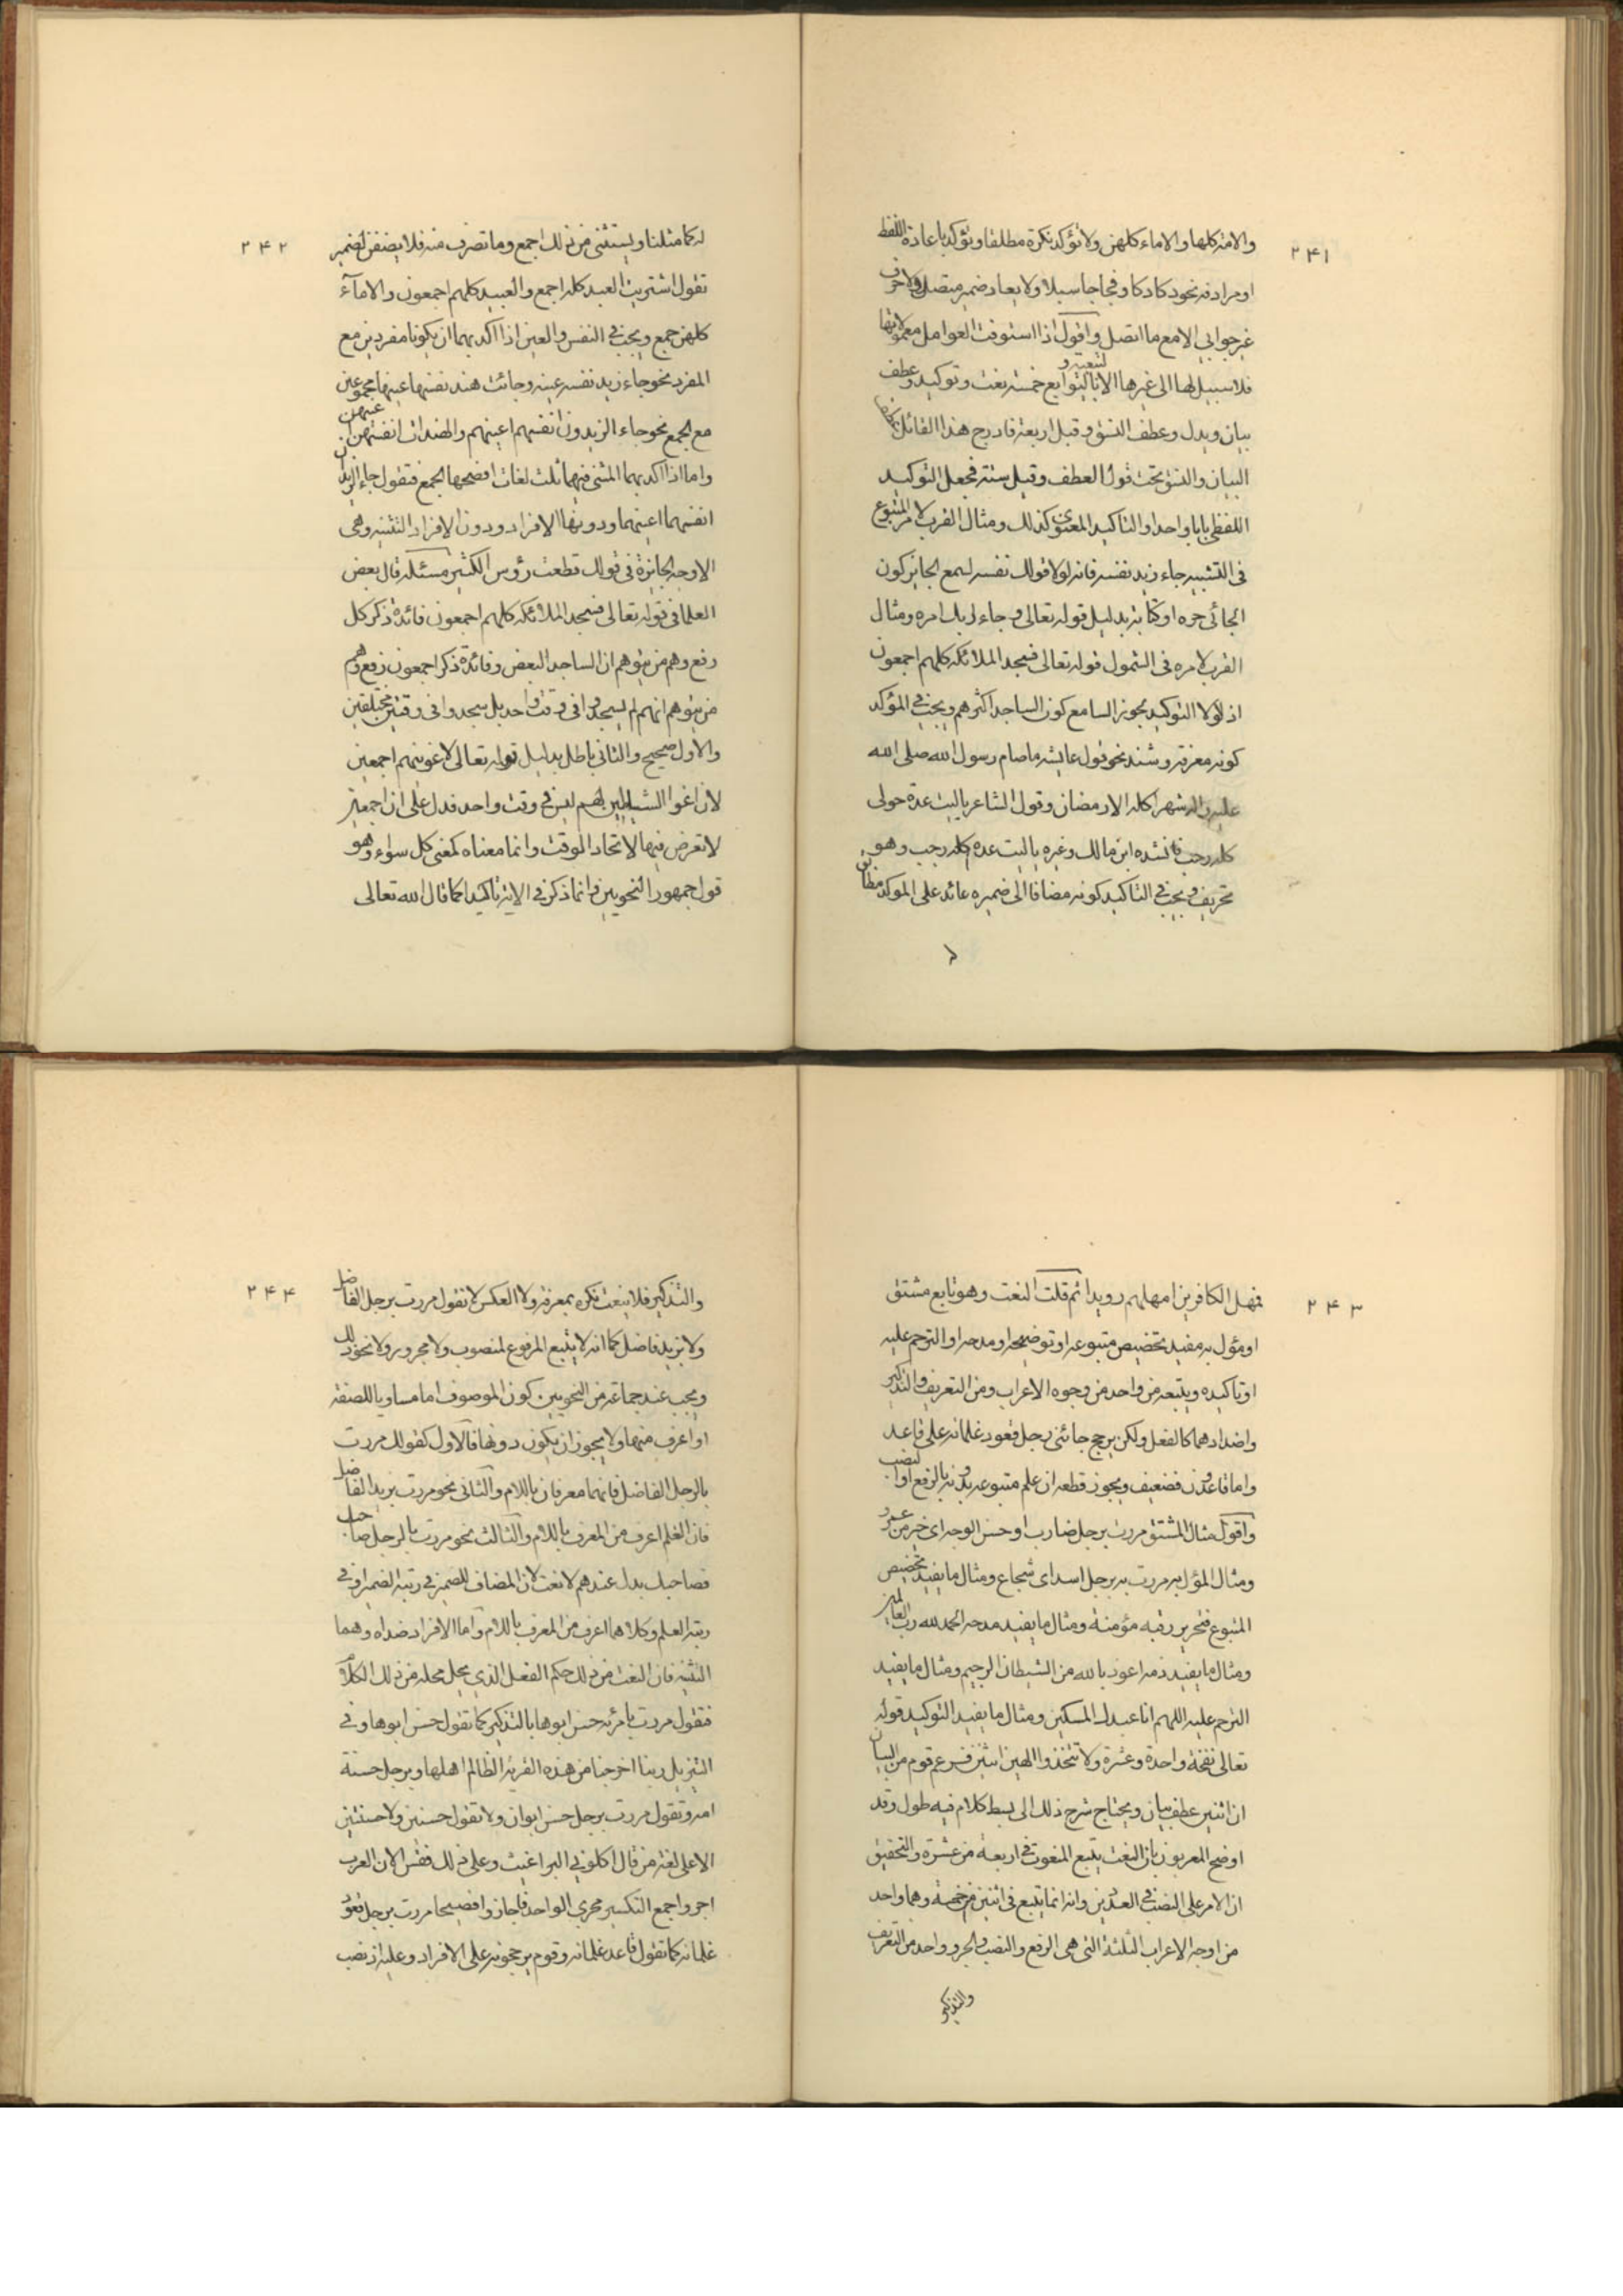 ٢۴١
والامة كلها والاماء كلهن ولا تؤكد نكرة مطلقا وتؤكد باعادة اللفظ
او مرادفه نحو دكا دكا وفجاجا سبلا ولا يعاد ضمير متصل ولا حرف
غير جوابي الا مع ما اتصل واقول اذا استوفت العوامل معمولاتها
فلا سبيل لها الى غيرها الا بالتبعية والتوابع خمسة نعت وتوكيد وعطف
بيان وبدل وعطف النسق وقيل اربعة فادرج هذا القائل عطف
البيان والنسق تحت قوله العطف وقيل ستة فجعل التوكيد
اللفظي بابا واحدا والتاكيد المعنوي كذلك ومثال المقرر لامر المتبوع
في التشبيه جاء زيد نفسه فانه لولا قولك نفسه لسمع الجايز كون
الجائي خبره او كتابه بدليل قوله تعالى وجاء ربك امره ومثال
المقرر لامره في الشمول قوله تعالى فسجد الملائكة كلهم اجمعون
اذ لولا التوكيد يجوز السامع كون الساجد اكثرهم ويجب في المؤكد
كونه معرفة وشذ نحو قول عايشه ما صام رسول الله صلى الله
عليه واله شهرا كله الا رمضان وقول الشاعر يا ليت عدة حولى
كله رجب فانشده ابن مالك وغيره يا ليت عدة كله رجب وهو
تحريف ويجب في التاكيد كونه مضافا الى ضميره عائد على المؤكد مطابق
له
٢۴٢
له كما مثلنا ويستثنى من ذلك اجمع وما تصرف منه فلا يضفن لضمير
تقول اشتريت العبد كله اجمع والعبيد كلهم اجمعون والامآء
كلهن جمع ويجب في النفس والعين اذا اكد بهما ان يكونا مفردين مع
المفرد نحو جاء زيد نفسه عينه وجائت هند نفسها عينها مجموعين
مع الجمع نحو جاء الزيدون انفسهم اعينهم والهندات انفسهن اعينهن
واما اذا اكد بهما المثنى ففيهما ثلث لغات افصحها الجمع فتقول جاء الزيدان
انفسهما اعينهما ودونها الافراد ودون الافراد التثنيه وهي
الاوجه الجايزة في قولك قطعت رؤس الكبشين مسئلة قال بعض
العلما في قوله تعالى فسجد الملائكة كلهم اجمعون فائدة ذكر كل
رفع وهم من يتوهم ان الساجد البعض وفائدة ذكر اجمعون رفع وهم
من يتوهم انهم لم يسجدوا في وقت واحد بل سجدوا في وقتين مختلفين
والاول صحيح والثاني باطل بدليل قوله تعالى لاغوينهم اجمعين
لان اغوا الشياطين لهم ليس في وقت واحد فدل على ان اجمعين
لا تعرض فيها لاتحاد الوقت وانما معناه كمعنى كل سواء وهو
قول جمهور النحويين وانما ذكر في الاية تاكيدا كما قال الله تعالى
٢۴٣
فمهل الكافرين امهلهم رويدا ثم قلت النعت وهو تابع مشتق
او مؤول به مفيد تخصيص متبوعه او توضيحه او مدحه او الترحم عليه
او تاكيده ويتبعه من واحد من وجوه الاعراب ومن التعريف والتنكير
واضدادهما كالفعل ولكن يرجح جائني رجل قعود غلمانه على قاعد
واما قاعدون فضعيف ويجوز قطعه ان علم متبوعه بدونه بالرفع او النصب
واقول مثال المشتق مررت برجل ضارب او حسن الوجه اى خير من عمرو
ومثال المؤل به مررت برجل اسد اى شجاع ومثال ما يفيد تخصيص
المتبوع فتحرير رقبة مؤمنة ومثال ما يفيد مدحه الحمد لله رب العالمين
ومثال ما يفيد ذمه اعوذ بالله من الشيطان الرجيم ومثال ما يفيد
الترحم عليه اللهم انا عبدك المسكين ومثال ما يفيد التوكيد قوله
تعالى نفخة واحدة وعشرة ولا تتخذوا الهين اثنين فزعم قوم من البيان
ان اثنين عطف بيان ويحتاج شرح ذلك الى بسط كلام فيه طول وقد
اوضح المعربون بان النعت يتبع المنعوت في اربعة من عشرة والتحقيق
ان الامر على النصف في العددين وانه انما يتبع في اثنين من خمسة وهما واحد
من اوجه الاعراب الثلثة التى هى الرفع والنصب والجر وواحد من التعريف
والتنكير
٢۴۴
والتنكير فلا ينعت نكره بمعرفة ولا العكس لا تقول مررت برجل الفاضل
ولا بزيد فاضل كما انه لا يتبع المرفوع لمنصوب ولا مجرور ولا نحو ذلك
ويجب عند جماعة من النحويين كون الموصوف اما مساويا للصفة
او اعرف منها ولا يجوز ان يكون دونها فالاول كقولك مررت
بالرجل الفاضل فانهما معرفان باللام والثاني نحو مررت بزيد الفاضل
فان العلم اعرف من المعرف باللام والثالث نحو مررت بالرجل صاحبك
فصاحبك بدل عندهم لا نعت لان المضاف للضمير في رتبة الضمير او في
رتبة العلم وكلاهما اعرف من المعرف باللام واما الافراد ضداه وهما
التثنيه فان النعت من ذلك حكم الفعل الذي يحل محله من ذلك الكلام
فتقول مررت بامرئة حسن ابوها بالتذكير كما تقول حسن ابوها وفي
التنزيل ربنا اخرجنا من هذه القرية الظالم اهلها وبرجل حسنة
امه وتقول مررت برجل حسن ابوان ولا تقول حسنين ولا حسنتين
الا على لغة من قال اكلوني البراغيث وعلى ذلك فقس الا ان العرب
اجروا جمع التكسير مجرى الواحد فاجازوا فصيحا مررت برجل قعود
غلمانه كما تقول قاعد غلمانه وقوم يرجحونه على الافراد وعليه اذ نصب